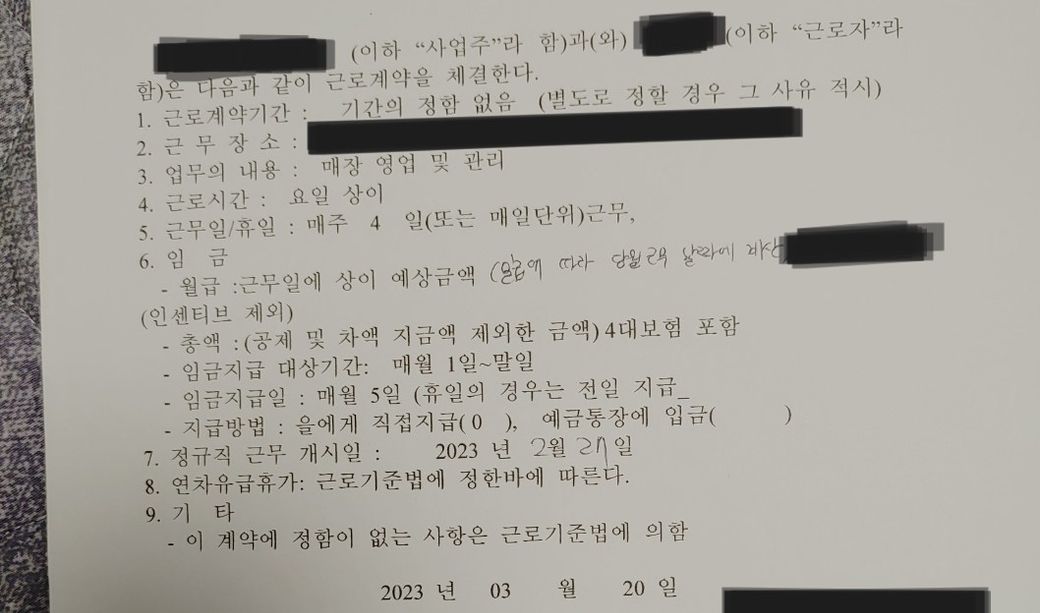 (이하 “사업주”라 함)과(와) (이하 “근로자”라
함)은 다음과 같이 근로계약을 체결한다.
1. 근로계약기간 : 기간의 정함 없음 (별도로 정할 경우 그 사유 적시)
2. 근 무 장 소 :
3. 업무의 내용 : 매장 영업 및 관리
4. 근로시간 : 요일 상이
5. 근무일/휴일 : 매주 4 일(또는 매일단위)근무,
6. 임 금
- 월급 :근무일에 상이 예상금액 ( 따라 당월 근무 날짜에 계산
(인센티브 제외)
- 총액 : (공제 및 차액 지금액 제외한 금액) 4대보험 포함
- 임금지급 대상기간: 매월 1일~말일
- 임금지급일 : 매월 5일 (휴일의 경우는 전일 지급_
- 지급방법 : 을에게 직접지급( 0 ), 예금통장에 입금( )
7. 정규직 근무 개시일 : 2023 년 2월 일
8. 연차유급휴가: 근로기준법에 정한바에 따른다.
9. 기 타
- 이 계약에 정함이 없는 사항은 근로기준법에 의함
2023 년 03 월 20 일